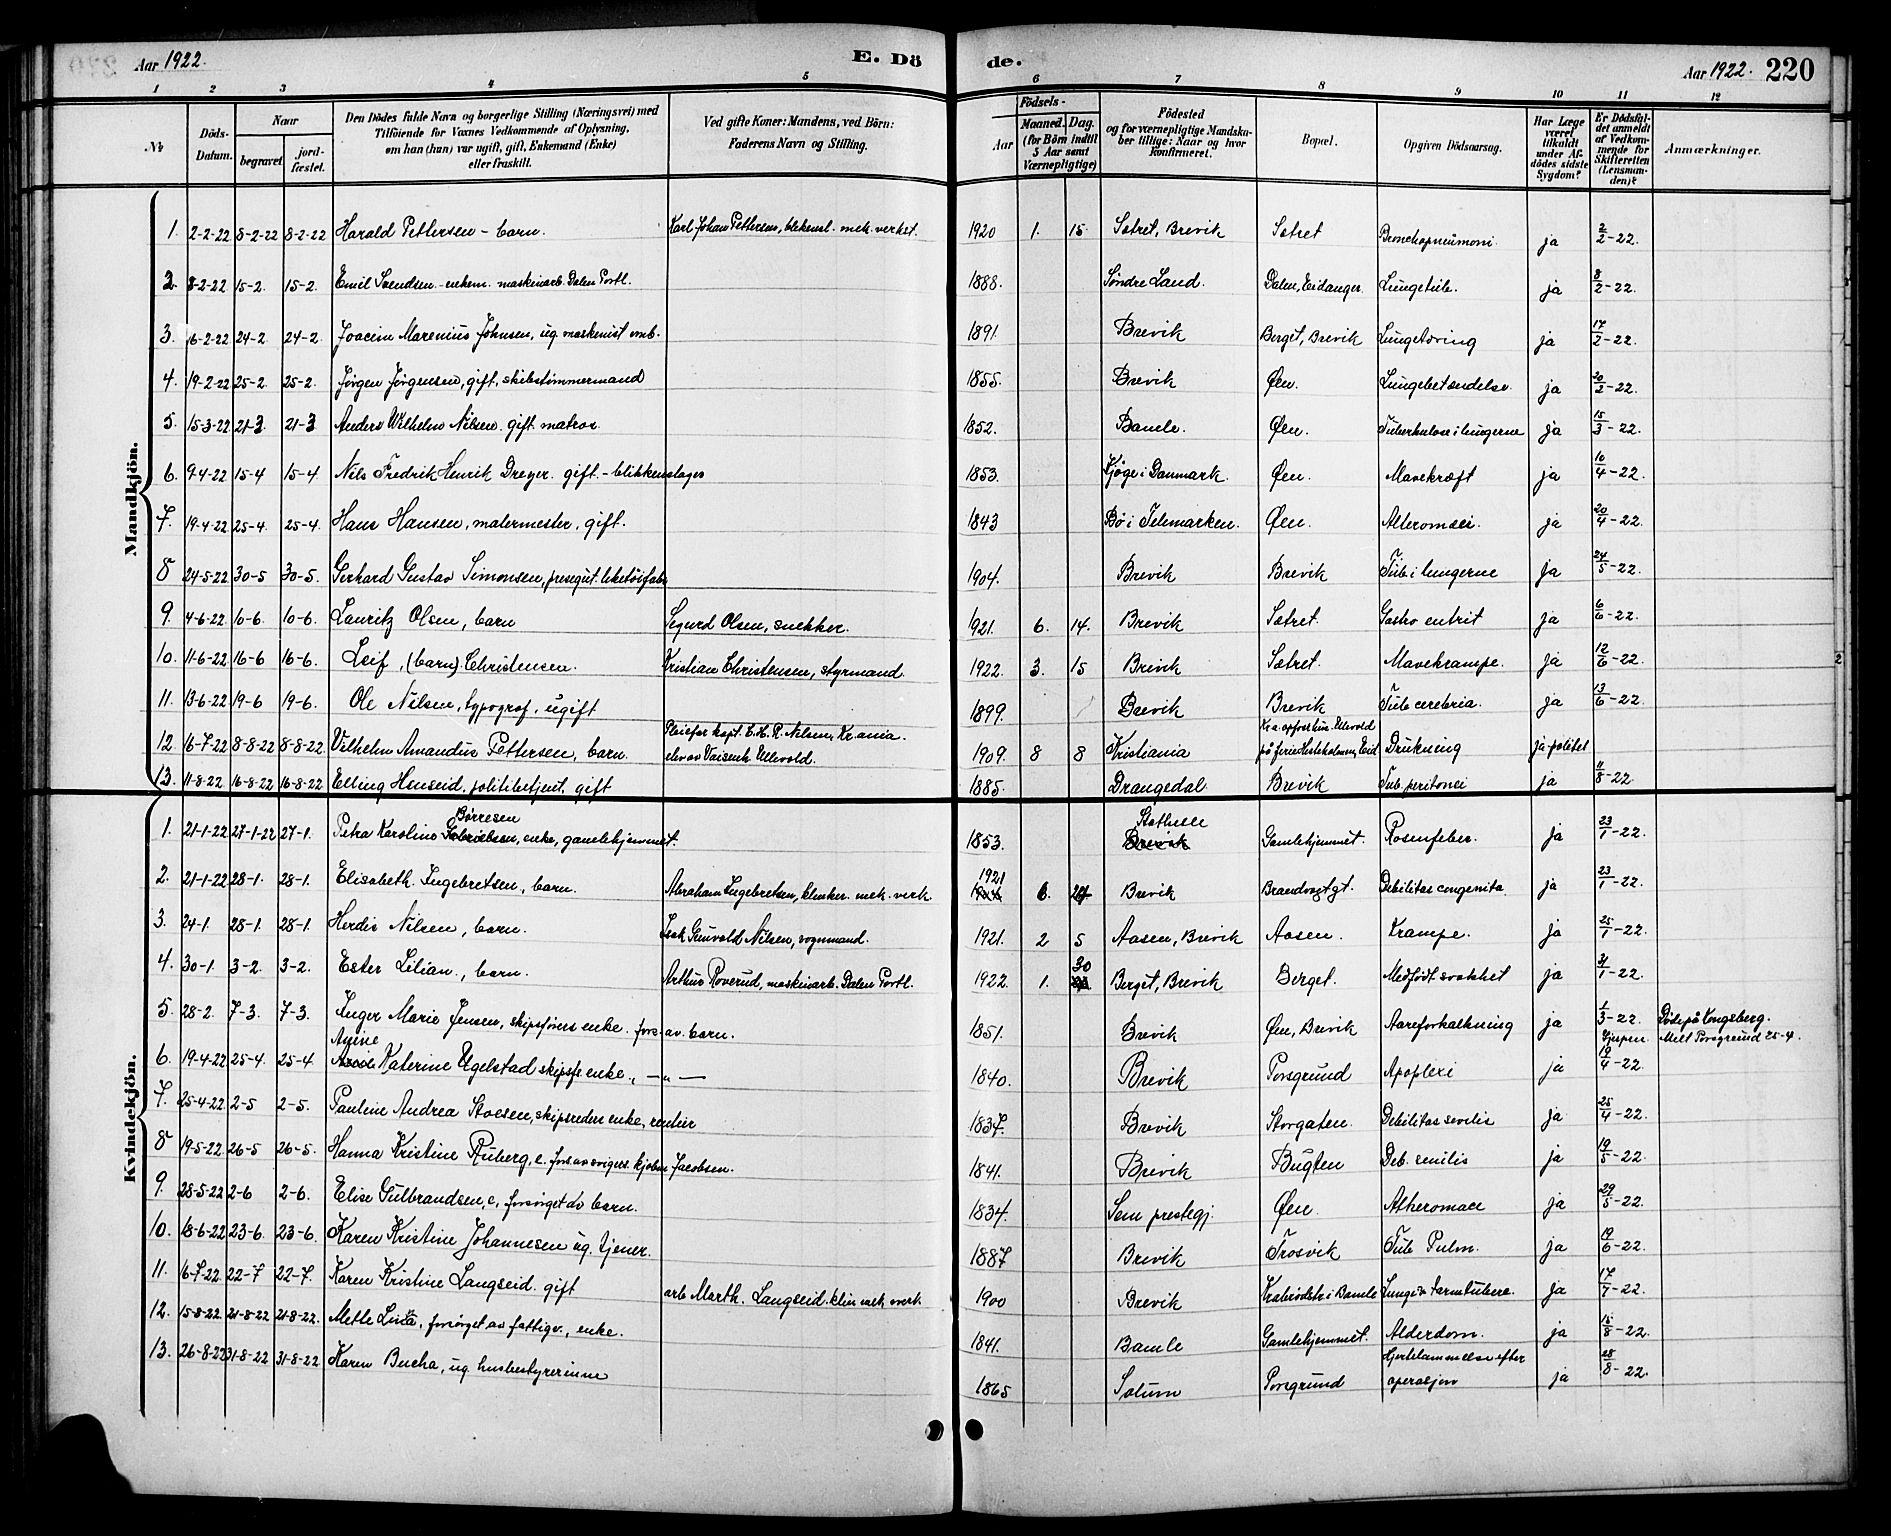 Aar 1922. E. Dö de. Aar 1922. 220
1 2 3 4 5 6 7 8 9 10 11 12
No
Döds-Datum.
Naar
begravet
jord-fæstet.
Den Dödes fulde Navn og borgerlige Stilling (Næringsvei) med Tilföiende for Voxnes Vedkommende af Oplysning, om han (hun) var ugift, gift, Enkemand (Enke) eller fraskilt.
Ved gifte Koner: Mandens, ved Börn: Faderens Navn og Stilling.
Födsels-
Aar
Maaned. Dag.
(for Börn indtil 5 Aar samt Værnepligtige)
Födested og for værnepligtige Mandskaber tillige: Naar og hvor konfirmeret.
Bopæl.
Opgiven Dödsaarsag.
Har Læge været tilkaldt under Afdödes sidste Sygdom?
Er Dödsfaldet anmeldt af Vedkommende for Skifteretten (Lensmanden)?
Anmærkninger.
Mandkjön.
1. 2-2-22 8-2-22 8-2-22 Harald Pettersen - barn. Karl Johan Pettersen, blekensl. mek. verkst. 1920 1. 15. Sætret, Brevik Sætret Bronchopneumoni ja 2/2-22.
2. 8-2-22 15-2. 15-2. Emil Svendsen - enkem. maskinarb. Dalen Portl. 1888. Søndre Land. Dalen, Eidanger Lungetub. ja 8/2-22.
3. 16-2-22 24-2 24-2. Joacim Marenius Johnsen, ug. maskinist omb. 1891. Brevik Berget, Brevik Lungetæring ja 17/2-22.
4. 19-2-22 25-2. 25-2. Jørgen Jørgensen, gift, skibstømmermand 1855. Brevik Øen. Lungebetændelse. ja 20/2-22.
5. 15-3-22 21-3 21-3 Anders Wilhelm Nilsen. gift. matros. 1852. Bamle. Øen. Tuberkulose i lungerne ja 15/3-22.
6. 9-4-22 15-4 15-4. Nils Fredrik Henrik Dreyer. gift. - blikkenslager 1853. Kjøge i Danmark. Øen. Mavekræft ja 10/4-22.
7. 19-4-22 25-4. 25-4. Hans Hansen, malermester, gift. 1843 Bø i Telemarken. Øen. Alteromaci. ja 20/4-22.
8 24-5-22 30-5 30-5. Gerhard Gustav Simonsen, presegut. leketøifabr 1904. Brevik Brevik Tub i lungerne ja 24/5-22.
9. 4-6-22 10-6. 10-6. Lauritz Olsen, barn Sigurd Olsen, snekker. 1921. 6. 14. Brevik Sætret. Gastro entrit ja 6/6-22.
10. 11-6-22 16-6 16-6. Leif, (barn) Christensen. Kristian Christensen, styrmand. 1922. 3. 15 Brevik Sætret. Mavekrampe. ja 12/6-22.
11. 13-6-22 19-6 19-6. Ole Nilsen, typograf, ugift 1899. Brevik Brevik Tub. cerebria. ja 13/6-22.
12 16-7-22 8-8-22 8-8-22. Vilhelm Amandus Pettersen, barn. Pleiefar kapt. E. H. R. Nilsen, Kr.ania. elev av Vaisenh. Ullevold. 1909. 8 8 Kristiania Kr.a opfostrhus. Ullevold på ferie Hestholmen, Eid Drukning ja-politet
13. 11-8-22 16-8-22 16-8-22 Elling Henseid, politibetjent, gift 1885. Drangedal. Brevik Tub. peritonei ja 11/8-22
Kvindekjön.
1. 21-1-22 27-1-22 27-1. Petra Karoline Børresen, enke, gamlehjemmet. 1853. Stathelle Gamlehjemmet. Rosenfeber. ja 23/1-22.
2. 21-1-22 28-1. 28-1. Elisabeth Ingebretsen, barn. Abraham Ingebretsen, klinker. mek. verk. 1921 6. 27 Brevik Brandvagtgt. Debilitas congenita. ja 23/1-22.
3. 24-1. 28-1. 28-1. Herdis Nilsen, barn. Isak Grunvold Nilsen, vognmand. 1921. 2 5 Aasen, Brevik Aasen. Krampe. ja 25/1-22.
4. 30-1. 3-2. 3-2. Ester Lilian., barn. Arthur Roverud, maskinarb. Dalen Portl. 1922. 1. 30 Berget, Brevik Berget. Medfødt svakhet ja 31/1-22.
5. 28-2. 7-3. 7-3. Inger Marie Jensen, skipsførers enke. fors. av barn. 1851. Brevik Øen, Brevik Aareforkalkning ja 1/3-22. Døde på Kongsberg.
6. 19-4-22 25-4. 25-4 Anine Katerine Ugelstad skipsf. enke., -"- 1840. Brevik Porsgrund Apoplexi ja Gjerpen 19/4-22. Melt Porsgrund 25-4.
7. 25-4-22 2-5 2-5. Pauline Andrea Stoesen, skipsreders enke, rentier 1837. Brevik Storgaten. Debilitas senilis ja 25/4-22.
8 19-5-22 26-5 26-5. Hanna Kristine Ruberg, e. fors. av svigers. kjøbm. Jacobsen. 1841. Brevik Bugten Deb. senilis ja 19/5-22.
9. 28-5-22 2-6 2-6. Elise Gulbrandsen, e, forsørget av barn. 1834. Sem prestegj. Øen. Atheromaci ja 29/5-22.
10. 18-6-22 23-6. 23-6. Karen Kristine Johannesen ug. tjener. 1887 Brevik Trosvik Tub Pulm. ja 19/6-22.
11. 16-7-22 22-7 22-7. Karen Kristine Langseid. gift arb Marth. Langseid. klin mek verk. 1900 Brevik Krabrødstr i Bamle Lunge & tarmtuberc. ja 17/7-22.
12. 15-8-22 21-8-22 21-8-22. Mette Lina, forsørget av fattigv., enke. 1841. Bamle Gamlehjemmet. Alderdom. ja 15/8-22.
13. 26-8-22 31-8-22 31-8-22 Karen Bucha, ug. husbestyrerinne 1865 Solum Porsgrund Hjertelammelse efter operasjon ja 28/8-22.